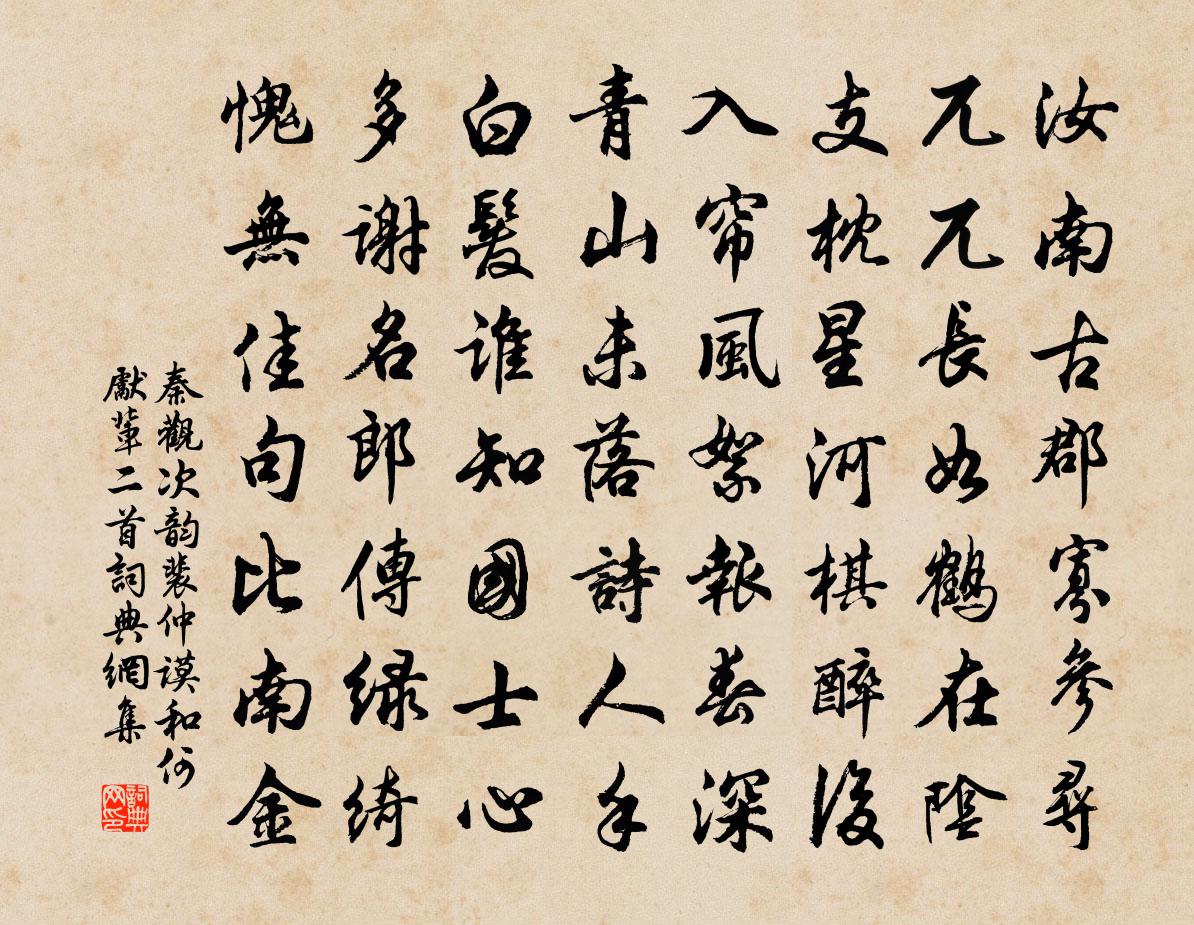 汝南古郡寡參尋
兀兀長如鶴在陰
支枕星河棋醉後
入帘風絮報春深
青山未落詩人手
白髮誰知國士心
多謝名郎傳綠綺
愧無佳句比南金
秦觀次韵裴仲謨和何
獻輩二首詞典網集
詞典
网印